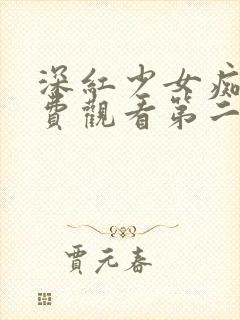 深紅少女痴
費觀看第二
賈元春